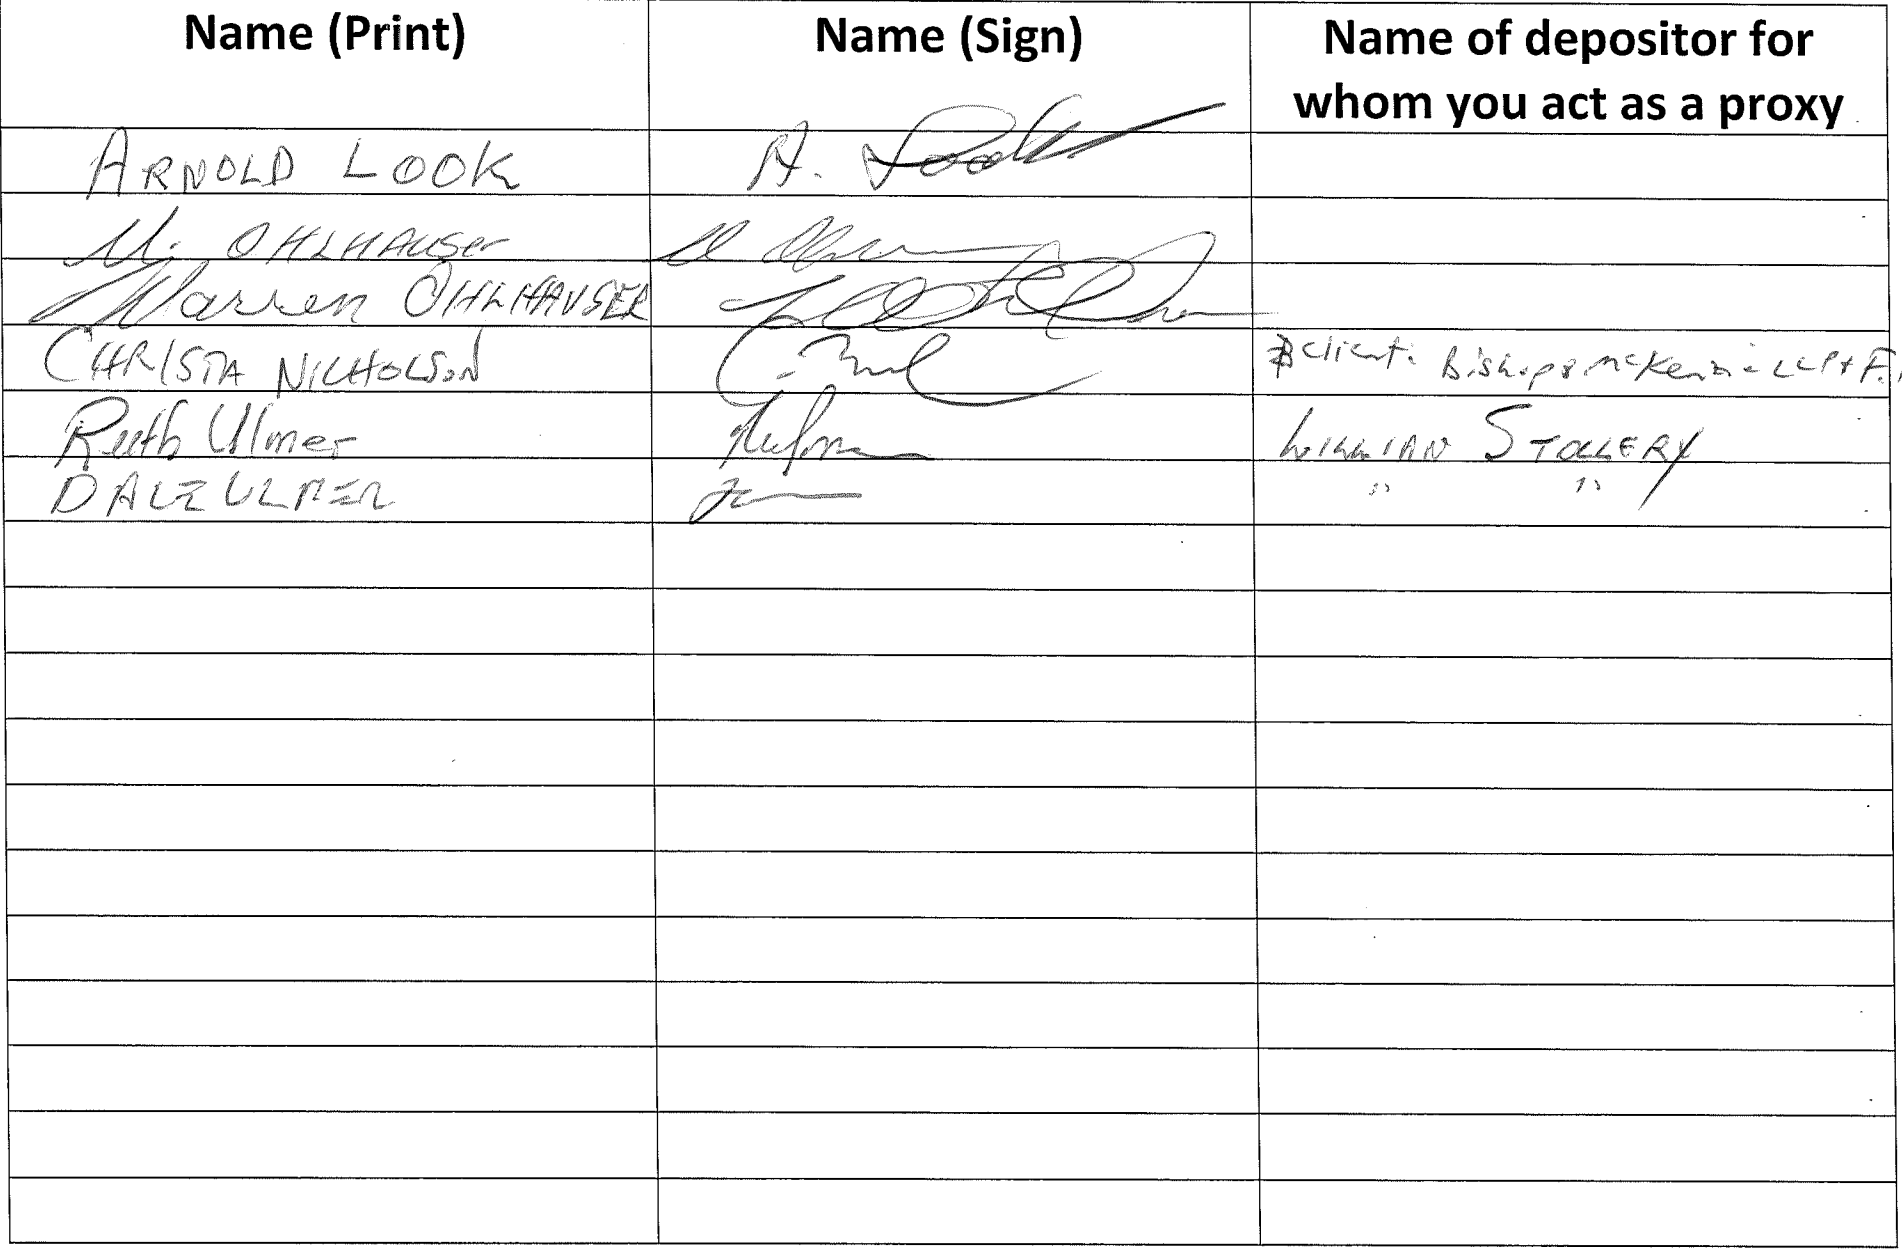 Name (Print) Name (Sign) Name of depositor for
whom you act as a proxy
ARNOLD LOOK A. Look
M. OHLHAUSer
Warren OHLHAUSER
CHRISTA NICHOLSON Client: Bishop & McKenzie LLP
Ruth Ulmer WILLIAN STOLLERY
DALE ULMER " "